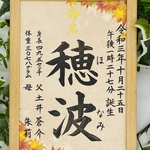 命名
令和三年十月二十五日
午後一時二十七分誕生
穂波
ほなみ
身長 四九・五センチ
体重 三〇七八グラム
父 土井 蒼介
母 朱莉